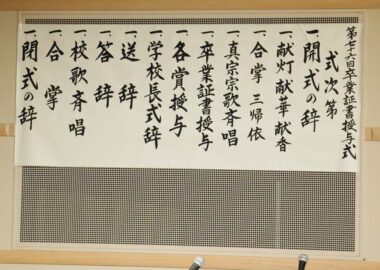 第七十六回卒業証書授与式
式次第
一、開式の辞
一、献灯献華献香
一、合掌 三帰依
一、真宗宗歌斉唱
一、卒業証書授与
一、各賞授与
一、学校長式辞
一、送辞
一、答辞
一、校歌斉唱
一、合掌
一、閉式の辞